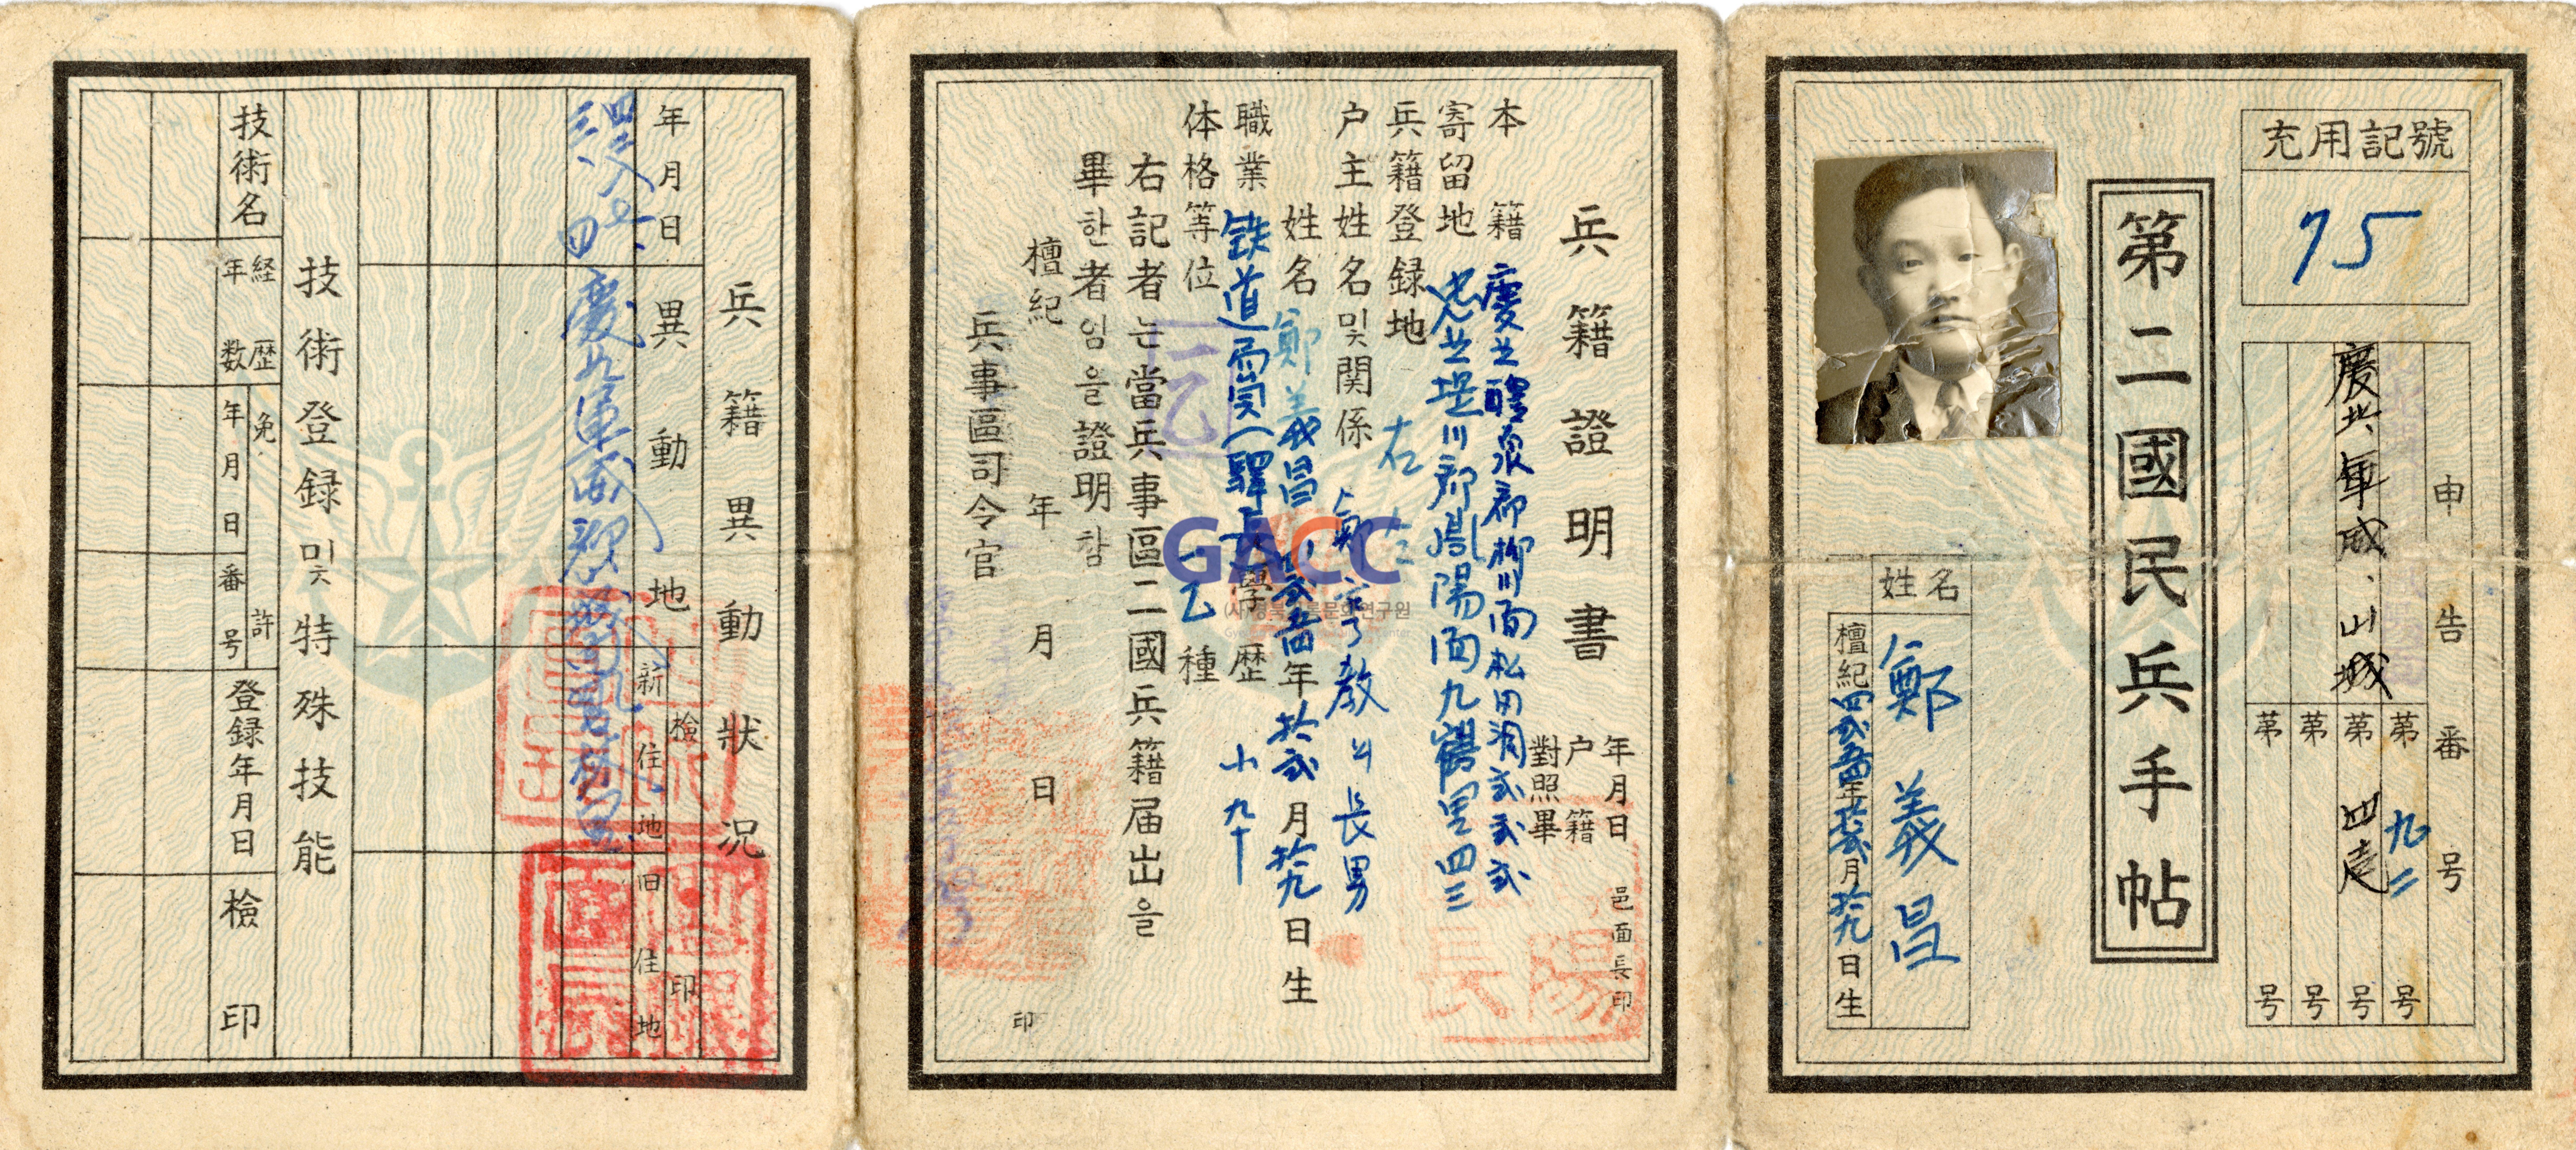 充用記號
75
申告番号
慶北軍威、山城
第 九二 号
第 号
第 号
第 号
第二國民兵手帖
姓名
鄭義昌
檀紀 年 月 拾九日生
兵籍證明書
年月日
户籍
對照畢
邑面長印
本籍 慶北醴泉郡柳川面松田洞弍弍弍
寄留地 忠北堤川郡鳳陽面九鶴里四三
兵籍登録地 右
户主姓名및関係 鄭 教 의長男
姓名 鄭義昌 年拾弍月拾九日生
職業 鉄道 (驛長 學歴 小卆
体格等位 一乙 種
右記者는當兵事區二國兵籍届出을
畢한者임을證明함
檀紀 年 月 日
兵事區司令官
印
GACC
兵籍異動狀况
年月日
異動地
檢印
新住地
旧住地
技術登録및特殊技能
技術名
経歴年数
免許
年月日
番号
登録年月日
檢印